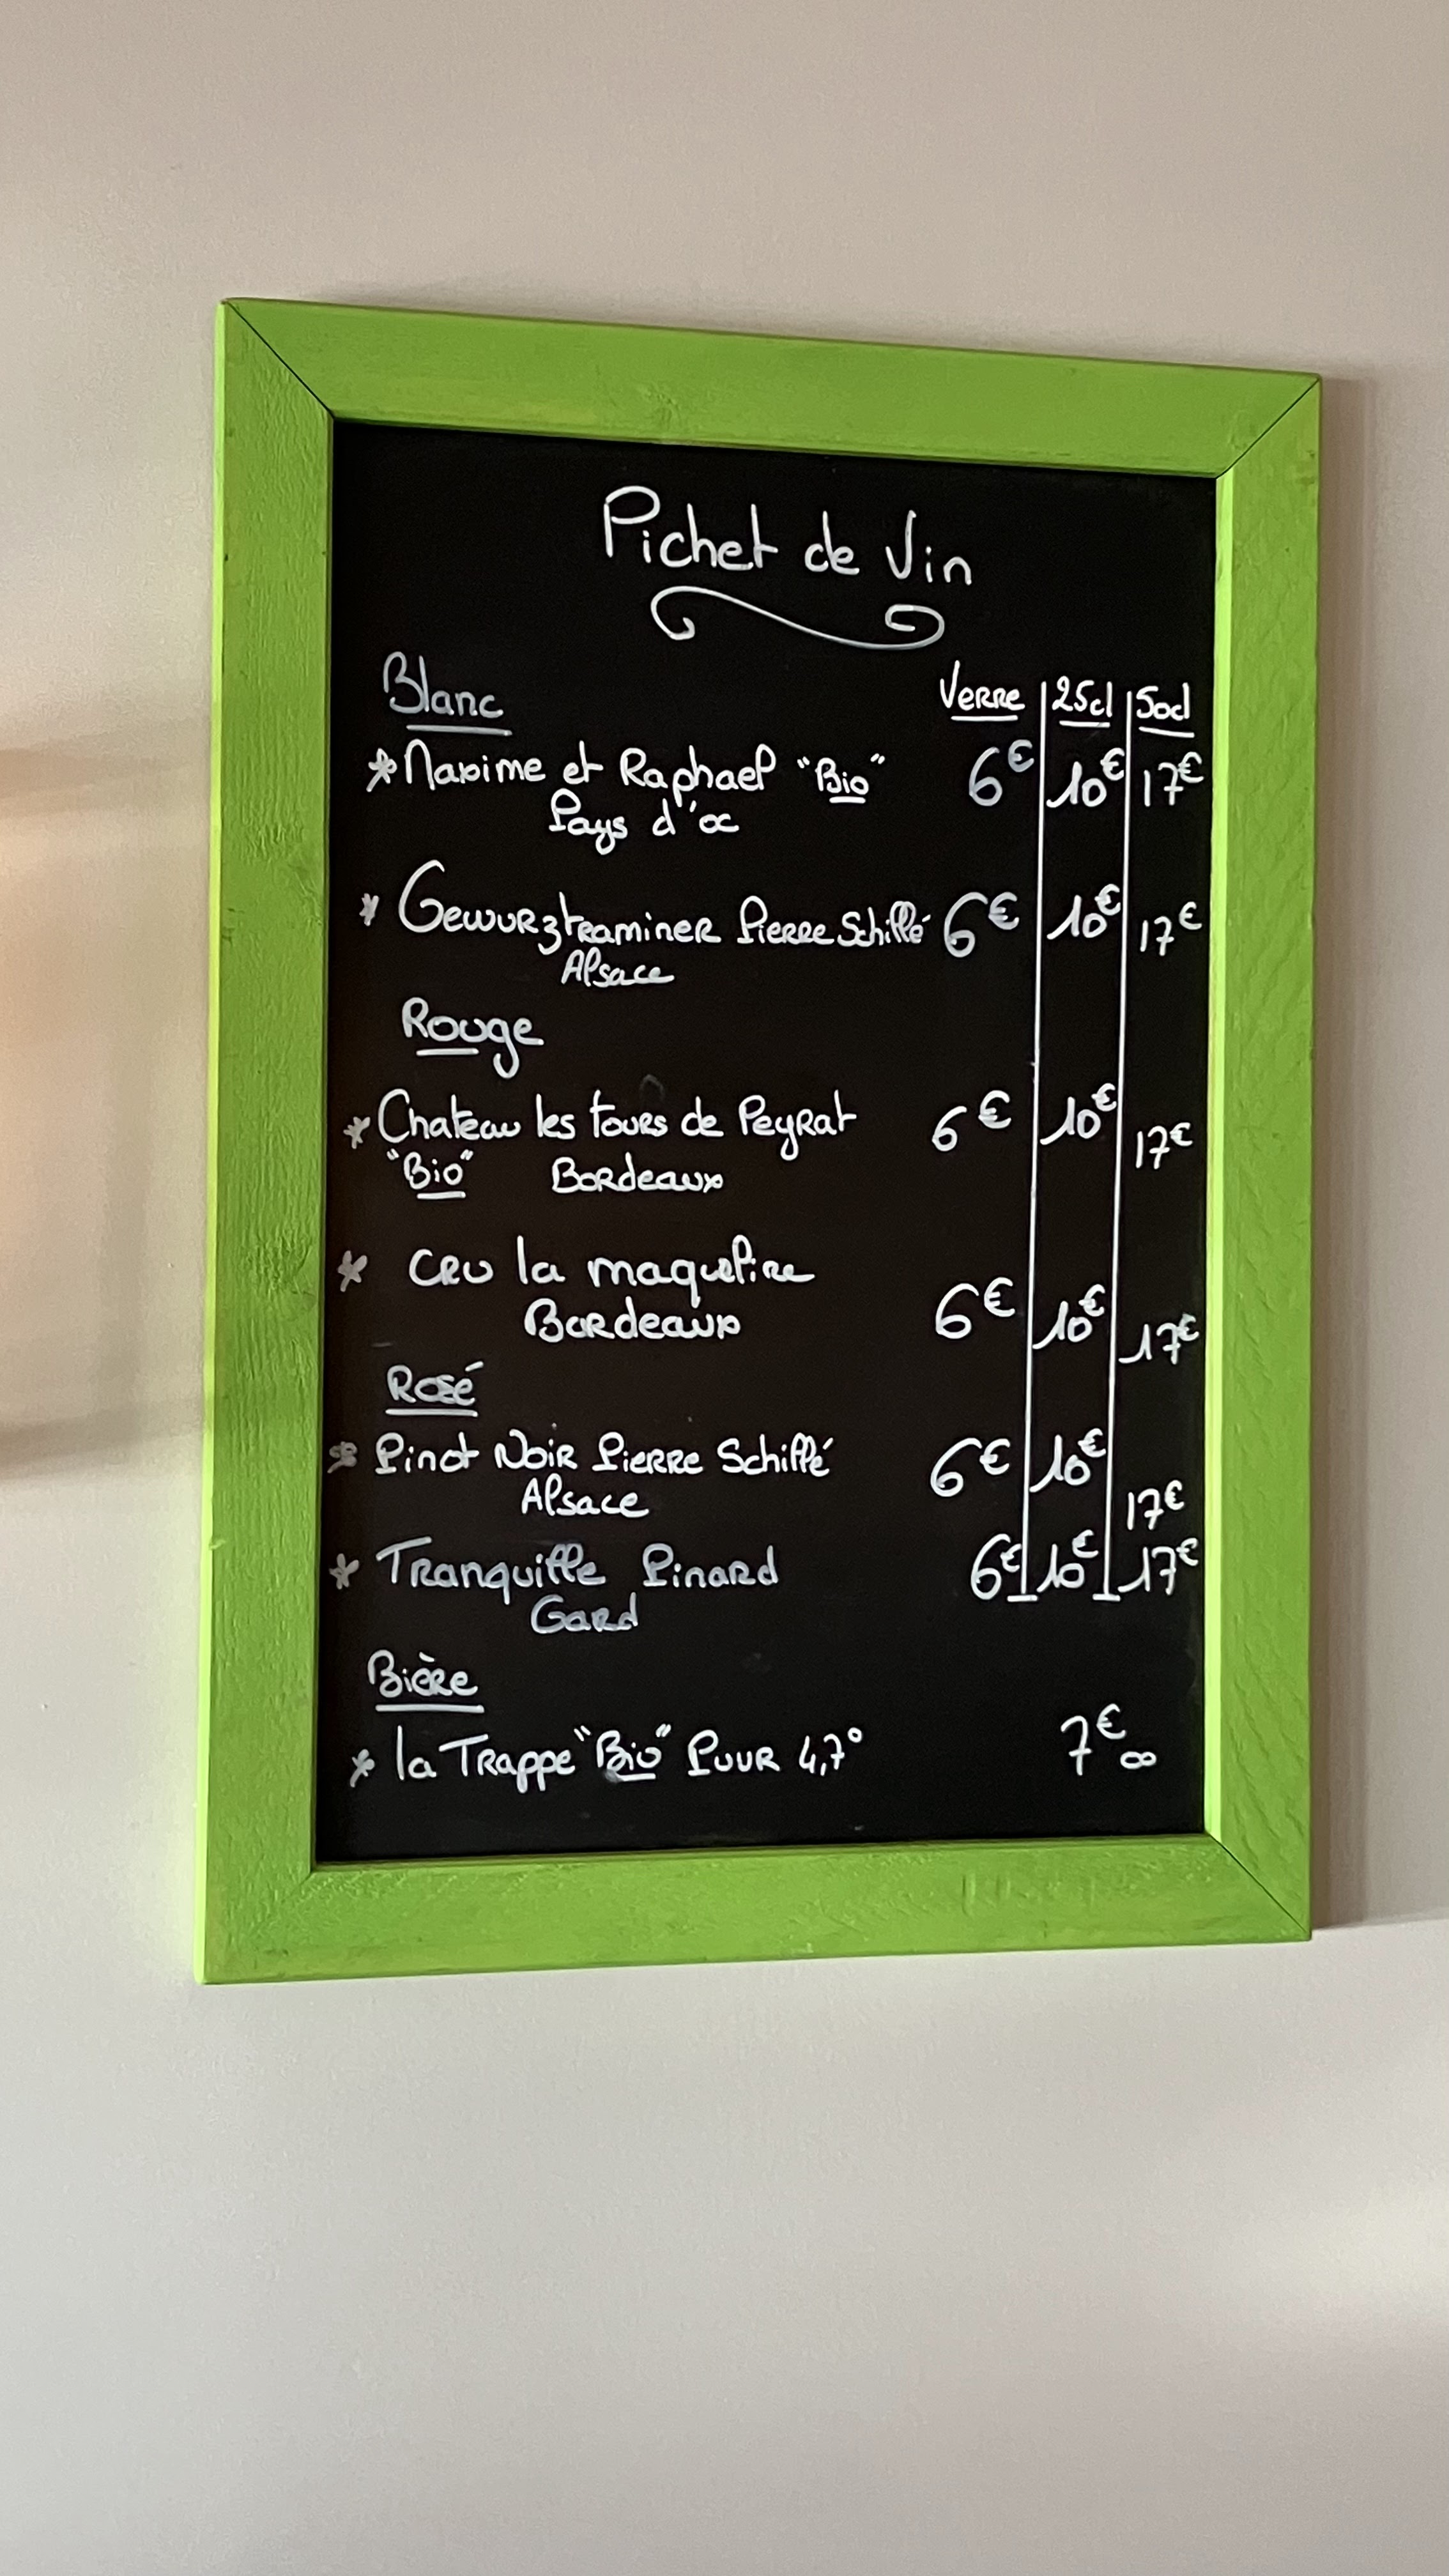 Pichet de Vin
Blanc Verre 25cl 50cl
* Maxime et Raphael "Bio" 6€ 10€ 17€
Pays d'oc
* Gewurztraminer Pierre Schillé 6€ 10€ 17€
Alsace
Rouge
* Chateau les tours de Peyrat 6€ 10€ 17€
"Bio" Bordeaux
* CRU la maqueline
Bordeaux 6€ 10€ 17€
Rosé
* Pinot Noir Pierre Schillé 6€ 10€
Alsace 17€
* Tranquille Pinard 6€ 10€ 17€
Gard
Bière
* la Trappe "Bio" PUUR 4,7° 7€00